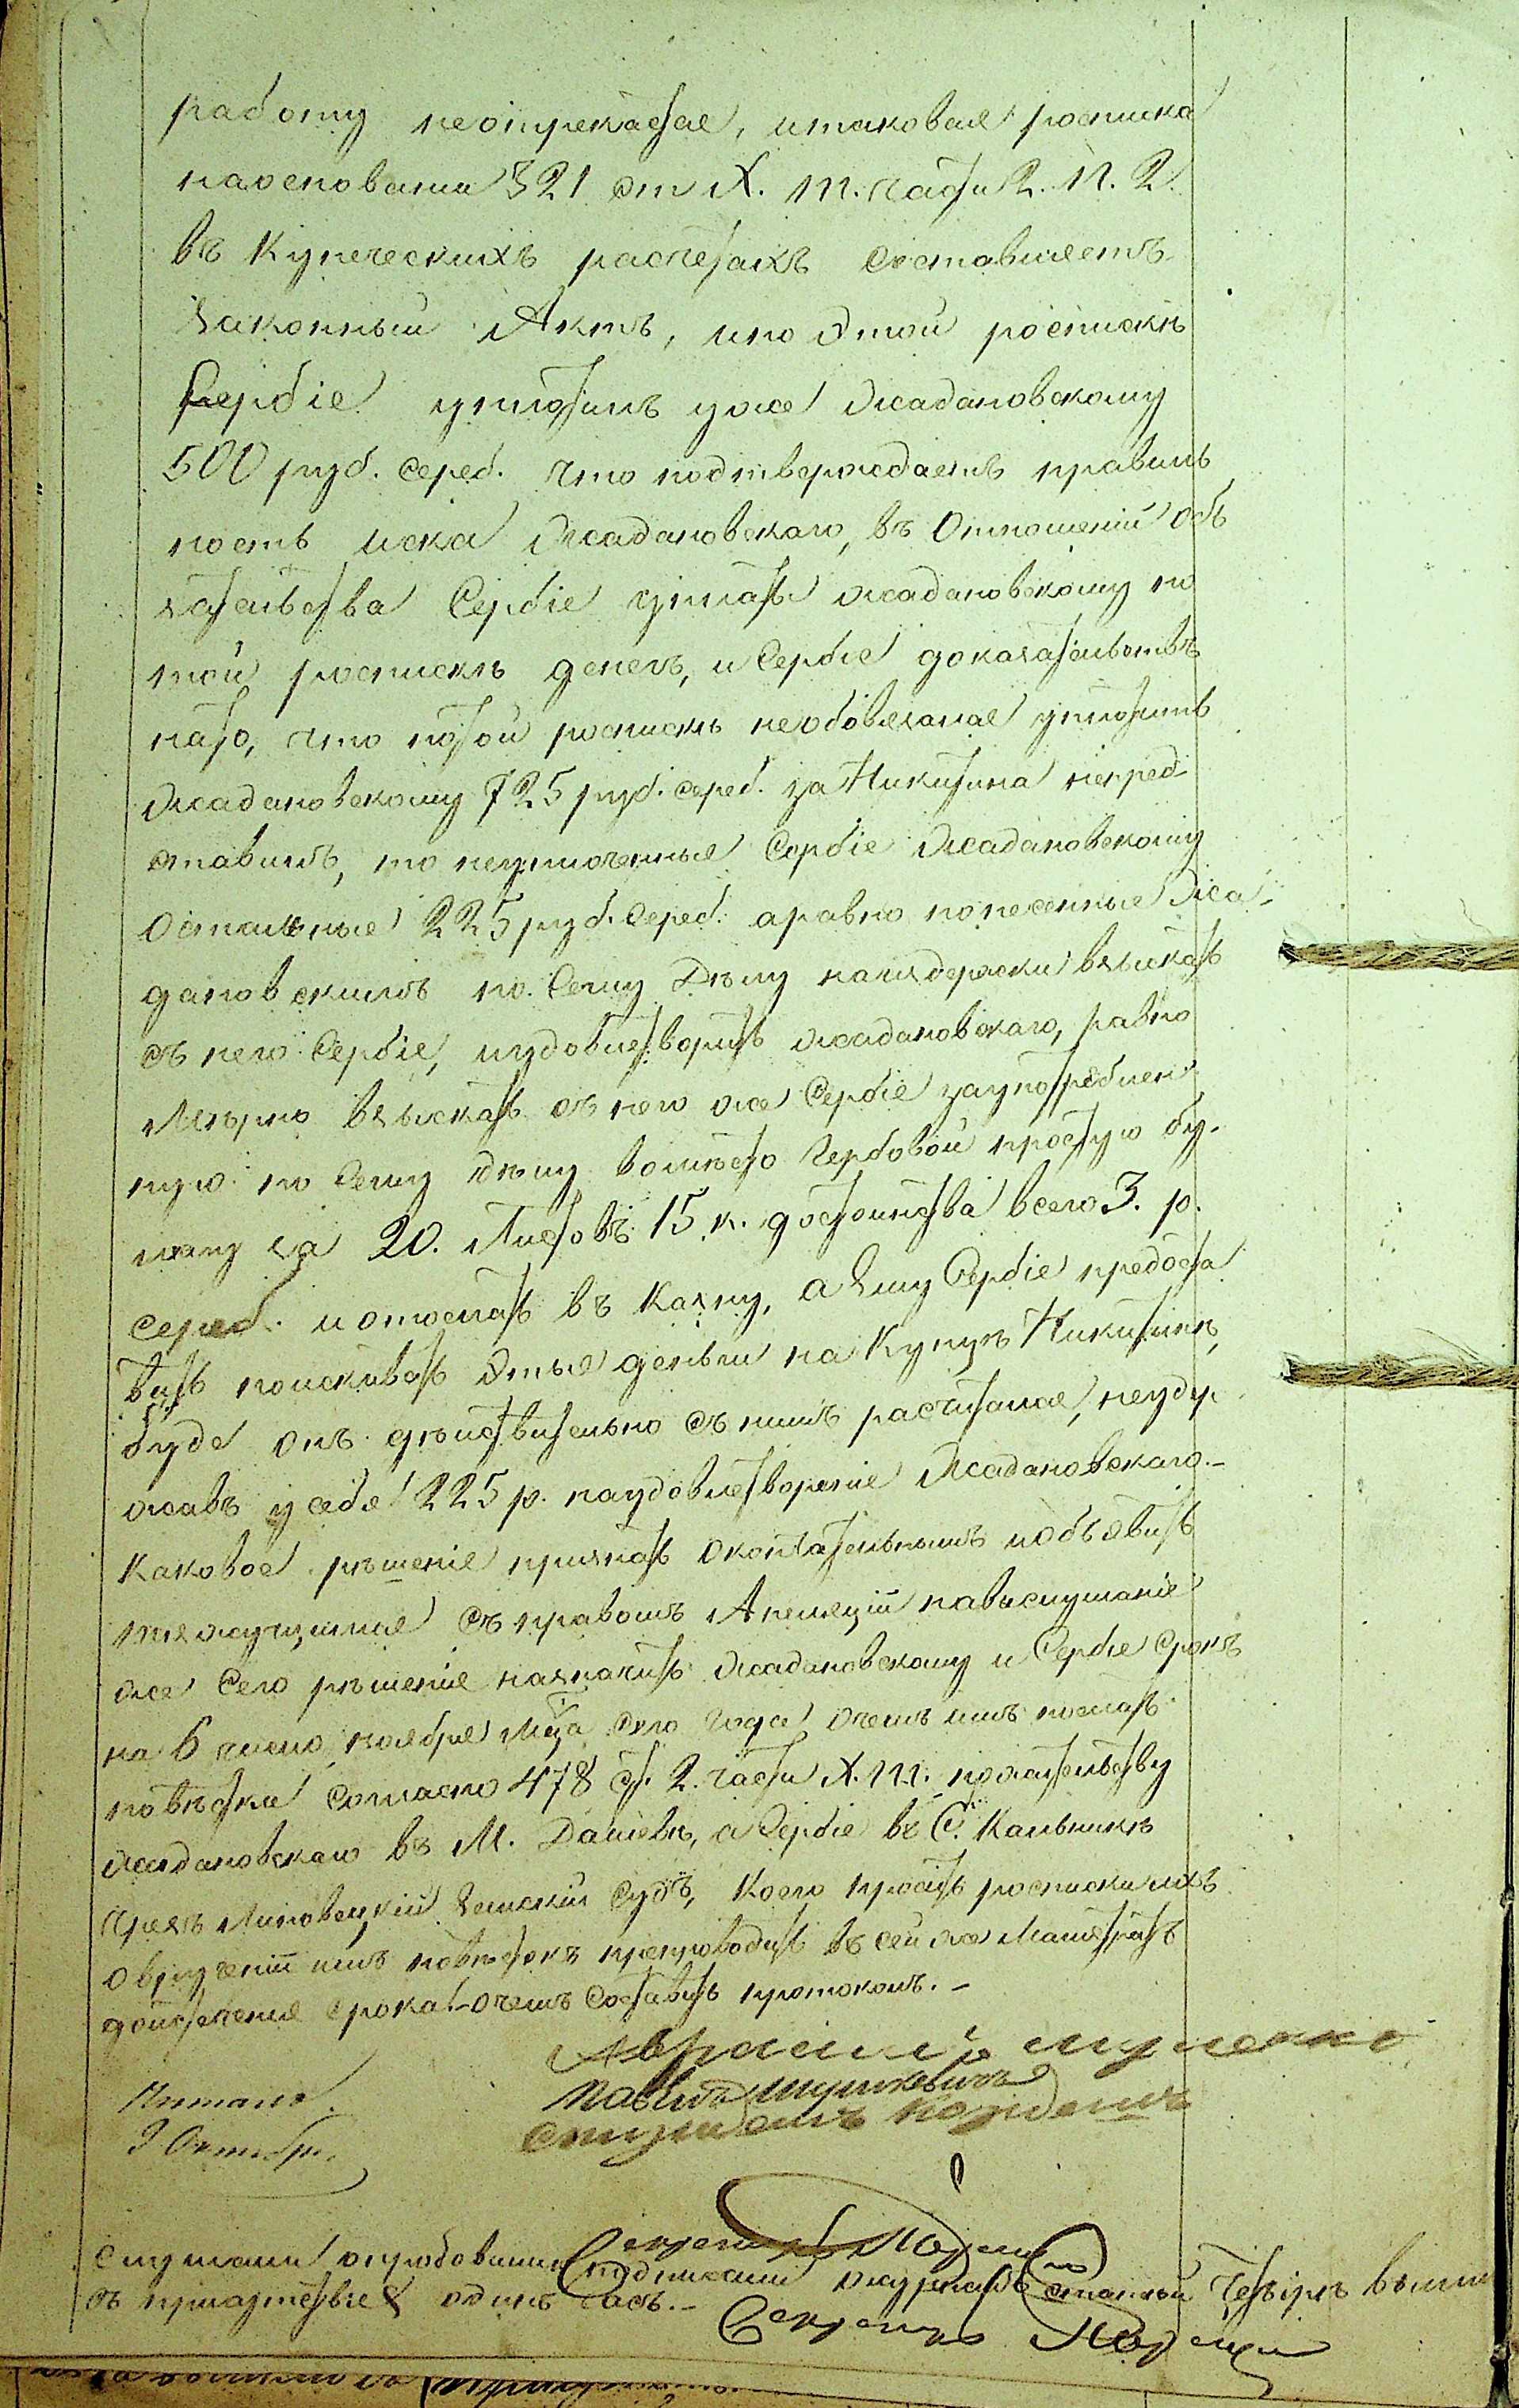 работу неотрекается, итаковая росписка
наосновании 321 ст X. т. части 2. п. 2.
въ Купеческихъ расчетахъ составляетъ
законный Актъ, ипо этой роспискѣ
Сербіе уплотилъ уже Жадановскому
500 руб. сереб. что подтверждаетъ правиль
ность иска Жадановскаго, въ Отношеніи обя
зательства Сербіе уплать Жадановскому по
той роспискѣ денегъ, и Сербіе доказательствъ
нато, что потой роспискѣ необовязался уплотить
Жадановскому 725 руб. сереб. за Никитина непред
ставилъ, то неуплоченные Сербіе Жадановскому
Остальные 225 руб. сереб. аравно понесенные Жа-
дановскимъ по Сему Дѣлу наиздержки взыскать
съ него Сербіе, иудовлетворить Жадановскаго, равно
мѣрно взыскать съ него же Сербіе заупотреблен
ную по Сему дѣлу вомѣсто Гербовой простую бу-
магу за 20. Листовъ 15 к. достоинства всего 3. р.
сереб. и отослать въ Казну, а Ему Сербіе предоста
вить поискивать Этые деньги на Купцѣ Никитинѣ,
буде онъ дѣйствительно съ нимъ расчитался, неудер
жавъ у себя 225 р. наудовлетвореніе Жадановскаго.-
Каковое рѣшеніе признать окончательнымъ иобъявить
тяжущимся съ правомъ Апеляціи навыслушаніе
же Сего рѣшеніе назначить Жадановскому и Сербіе Срокъ
на 6 число ноября Мца Сего Года очемъ имъ послать
повѣстки согласно 478 ст. 2. части X. т. пожительству
Жадановскаго въ М. Дашевѣ, а Сербіе въ С. Кальникѣ
чрезъ Липовецкій Земскій Судъ, Коего просить росписки ихъ
овручѣніи имъ повѣстокъ препроводить въ сей же Магистратъ
доистеченія срока - очемъ Составить протоколъ.-
Читано.
9 Октября.
Секретарь
Слушали опробовали подписали
въ присутствіе одинъ часъ.-
Секретарь